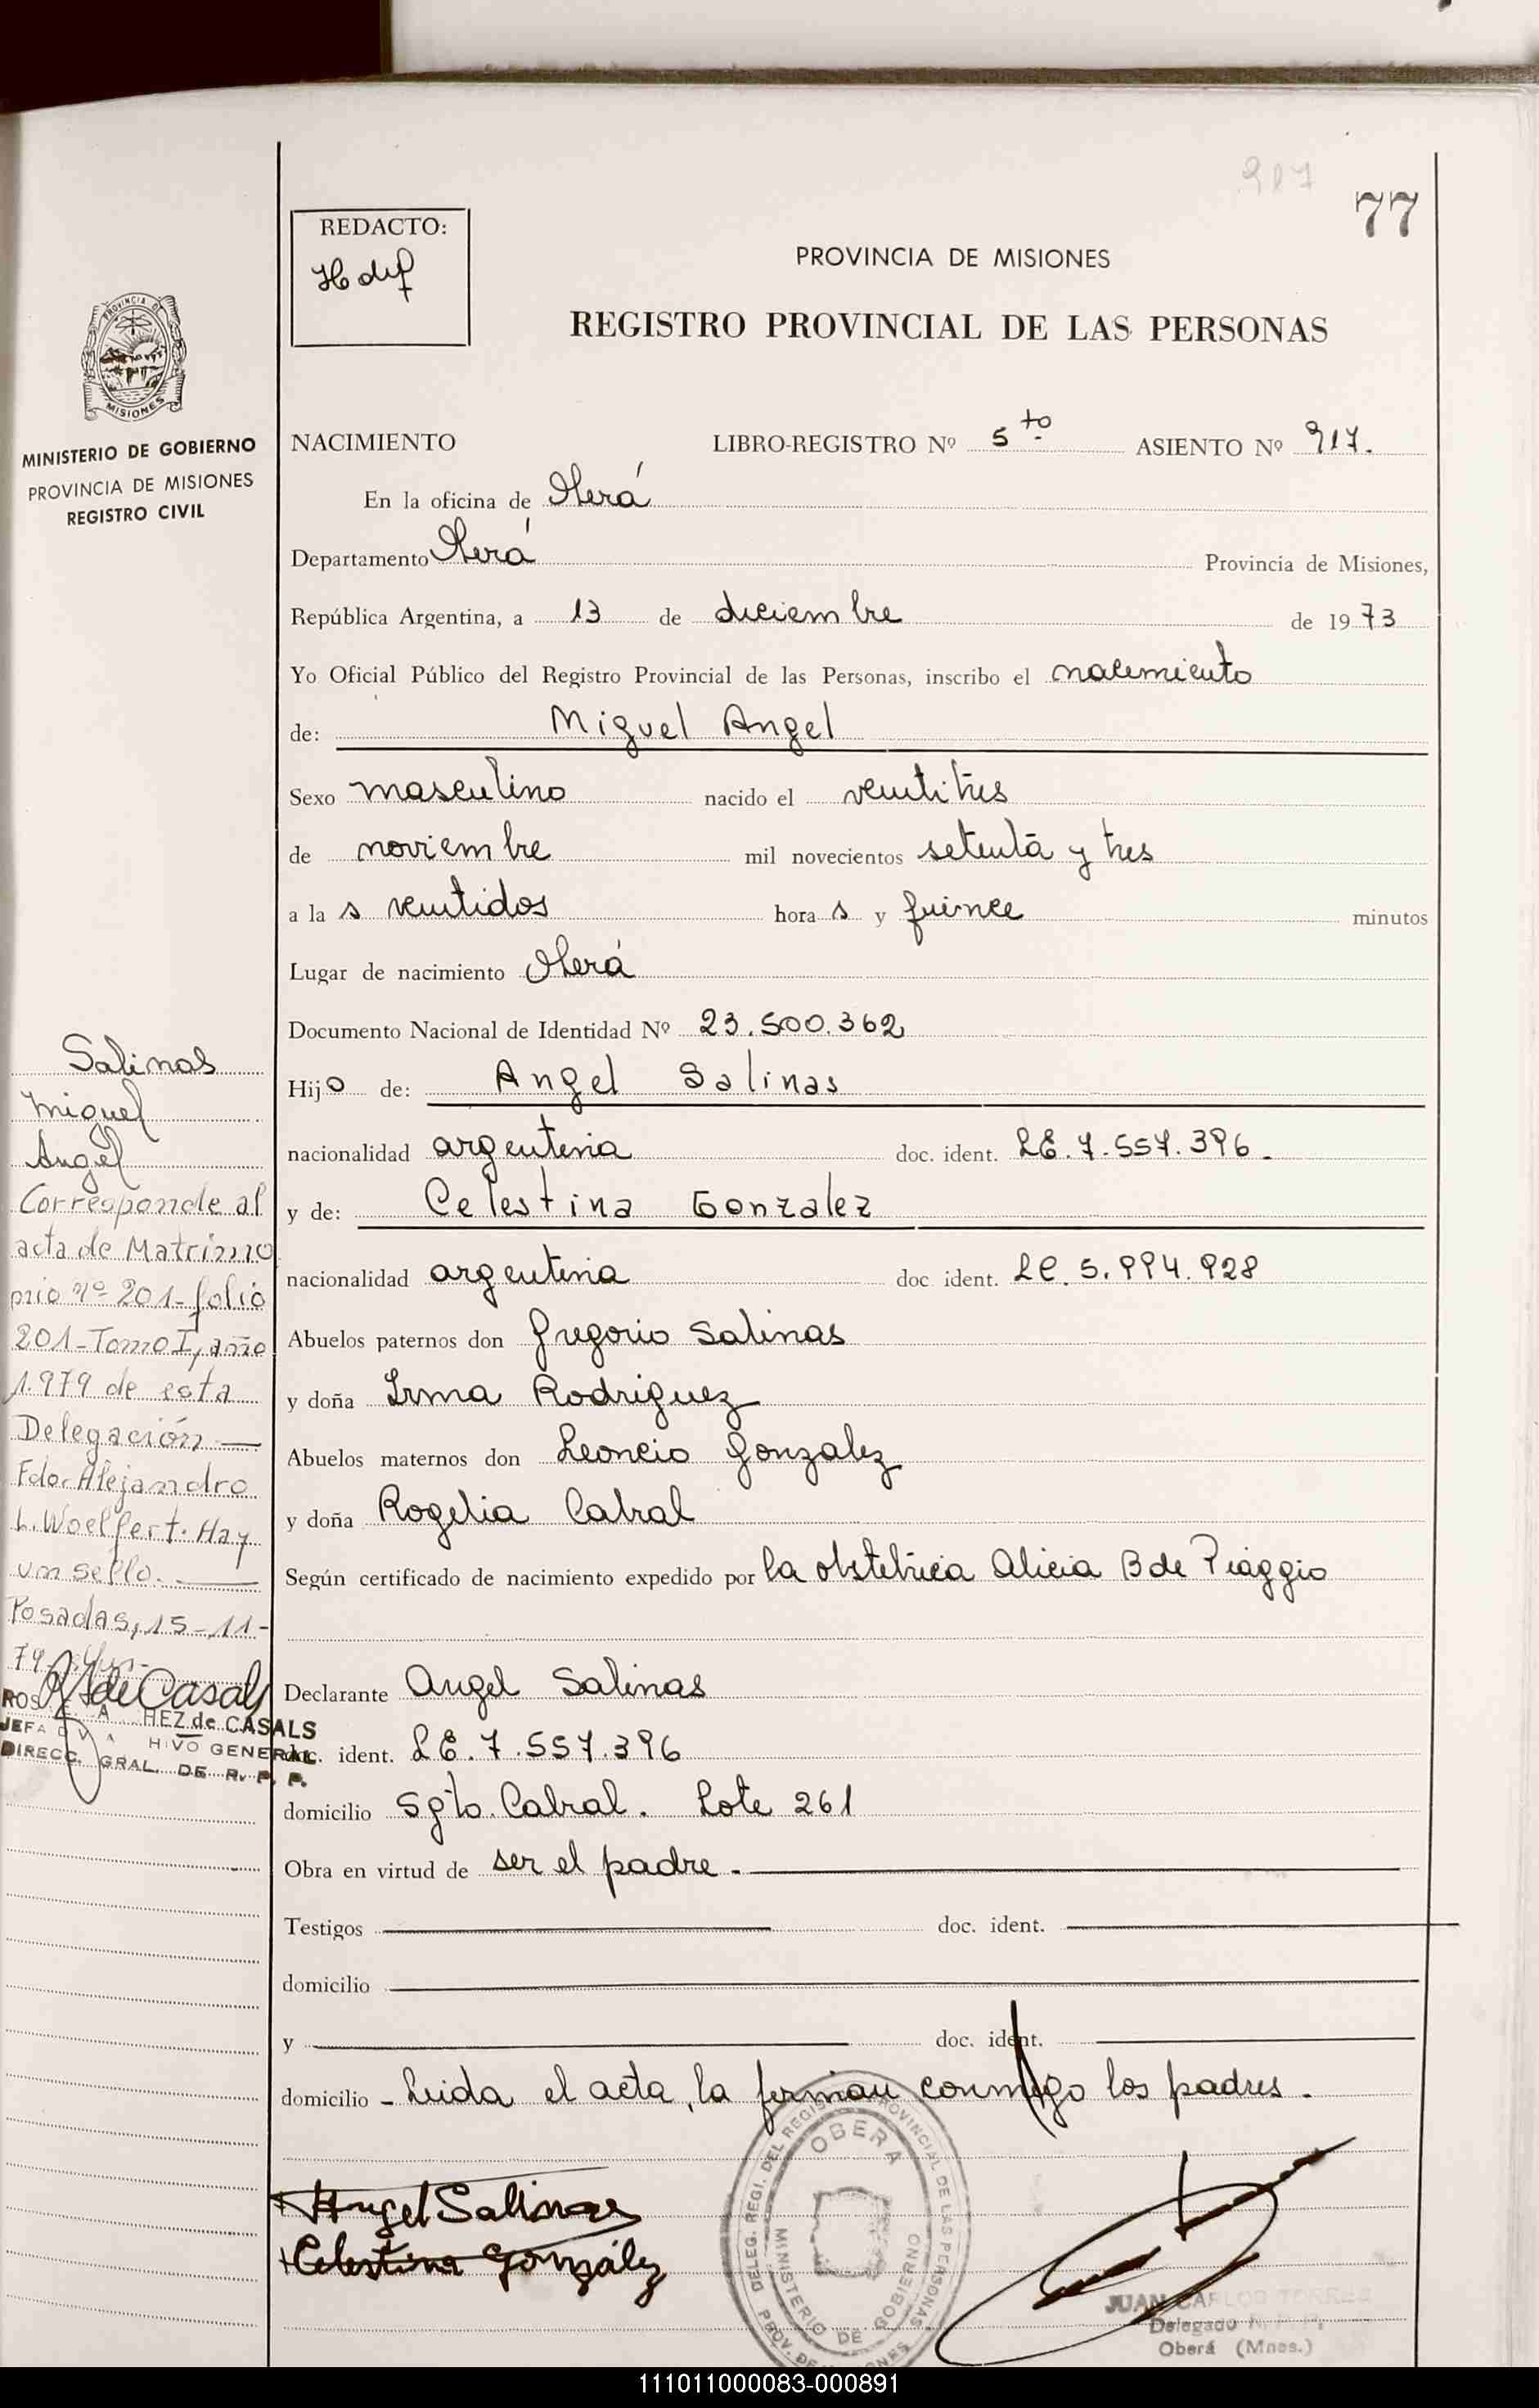 907
77
REDACTO:
PROVINCIA DE MISIONES
REGISTRO PROVINCIAL DE LAS PERSONAS
PROVINCIA DE
MISIONES
MINISTERIO DE GOBIERNO
PROVINCIA DE MISIONES
REGISTRO CIVIL
NACIMIENTO LIBRO-REGISTRO Nº 5to ASIENTO Nº 917.
En la oficina de Oberá
Departamento Oberá Provincia de Misiones,
República Argentina, a 13 de diciembre de 1973
Yo Oficial Público del Registro Provincial de las Personas, inscribo el nacimiento
de: Miguel Angel
Sexo masculino nacido el veintitres
de noviembre mil novecientos setenta y tres
a la s veintidos hora s y quince minutos
Lugar de nacimiento Oberá
Documento Nacional de Identidad Nº 23.500.362
Hijo de: Angel Salinas
nacionalidad argentina doc. ident. LE.7.557.396.
y de: Celestina Gonzalez
nacionalidad argentina doc ident. LC. 5.994.928
Abuelos paternos don Gregorio Salinas
y doña Irma Rodriguez
Abuelos maternos don Leoncio Gonzalez
y doña Rogelia Cabral
Según certificado de nacimiento expedido por la obstetrica Alicia B de Piaggio
Declarante Angel Salinas
doc. ident. LE.7.557.396
domicilio Sgto. Cabral. Lote 261
Obra en virtud de ser el padre.
Testigos doc. ident.
domicilio
y doc. ident.
domicilio - Leida el acta, la firman conmigo los padres.
Salinas
Miguel
Angel
Corresponde al
acta de Matrimo
nio nº 201-folio
201-Tomo I, año
1.979 de esta
Delegación —
Fdo. Alejandro
L. Woelfert. Hay
un sello. —
Posadas, 15-11-
79.
R A de Casals
HEZ de CASALS
JEFA DIV A HIVO GENERAL
DIRECC. GRAL. DE R. P. P.
Angel Salinas
Celestina González
DELEG. REGI. DEL REGISTRO PROVINCIAL DE LAS PERSONAS
OBERA
MINISTERIO DE GOBIERNO
PROV. DE MISIONES
JUAN CARLOS TORRES
Delegado R. P. P.
Oberá (Mnes.)
111011000083-000891